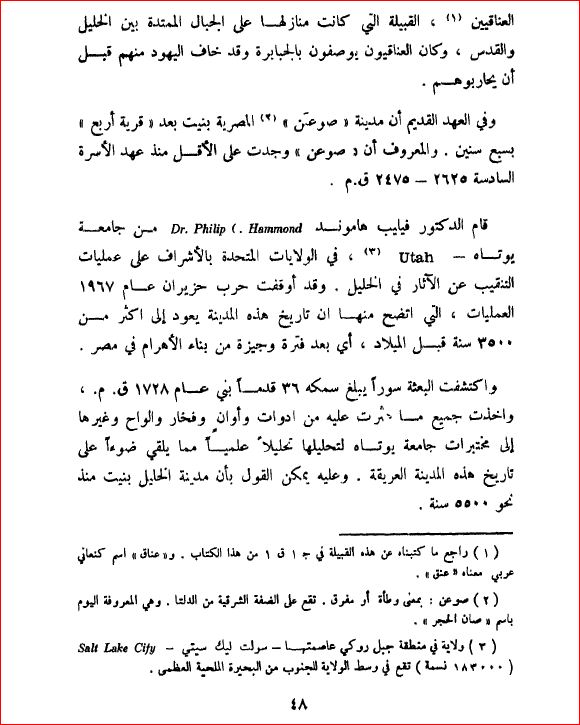 العناقيين (١) ، القبيلة التي كانت منازلها على الجبال الممتدة بين الخليل
والقدس ، وكان العناقيون يوصفون بالجبابرة وقد خاف اليهود منهم قبل
أن يحاربوهم .
وفي العهد القديم أن مدينة « صوعَن » (٢) المصرية بنيت بعد « قرية أربع »
بسبع سنين . والمعروف أن « صوعن » وجدت على الأقل منذ عهد الأسرة
السادسة ٢٦٢٥ – ٢٤٧٥ ق.م .
قام الدكتور فيليب هامونـد Dr. Philip (. Hammond من جامعة
يوتاه – Utah (٣) ، في الولايات المتحدة بالأشراف على عمليات
التنقيب عن الآثار في الخليل . وقد أوقفت حرب حزيران عام ١٩٦٧
العمليات ، التي اتضح منها ان تاريخ هذه المدينة يعود إلى اكثر من
٣٥٠٠ سنة قبل الميلاد ، أي بعد فترة وجيزة من بناء الأهرام في مصر .
واكتشفت البعثة سوراً يبلغ سمكه ٣٦ قدماً بني عام ١٧٢٨ ق. م. ،
واخذت جميع ما عثرت عليه من ادوات وأوانٍ وفخار والواح وغيرها
إلى مختبرات جامعة يوتاه لتحليلها تحليلاً علمياً مما يلقي ضوءاً على
تاريخ هذه المدينة العريقة . وعليه يمكن القول بأن مدينة الخليل بنيت منذ
نحو ٥٥٠٠ سنة .
( ١ ) راجع ما كتبناه عن هذه القبيلة في ج ١ ق ١ من هذا الكتاب . و« عناق » اسم كنعاني
عربي معناه « عنق » .
( ٢ ) صوعن : بمعنى وطأة أو مفرق . تقع على الضفة الشرقية من الدلتا . وهي المعروفة اليوم
باسم « صان الحجر » .
( ٣ ) ولاية في منطقة جبل روكي عاصمتها – سولت ليك سيتي – Salt Lake Cify
( ١٨٣٠٠٠ نسمة ) تقع في وسط الولاية للجنوب من البحيرة الملحية العظمى .
٤٨